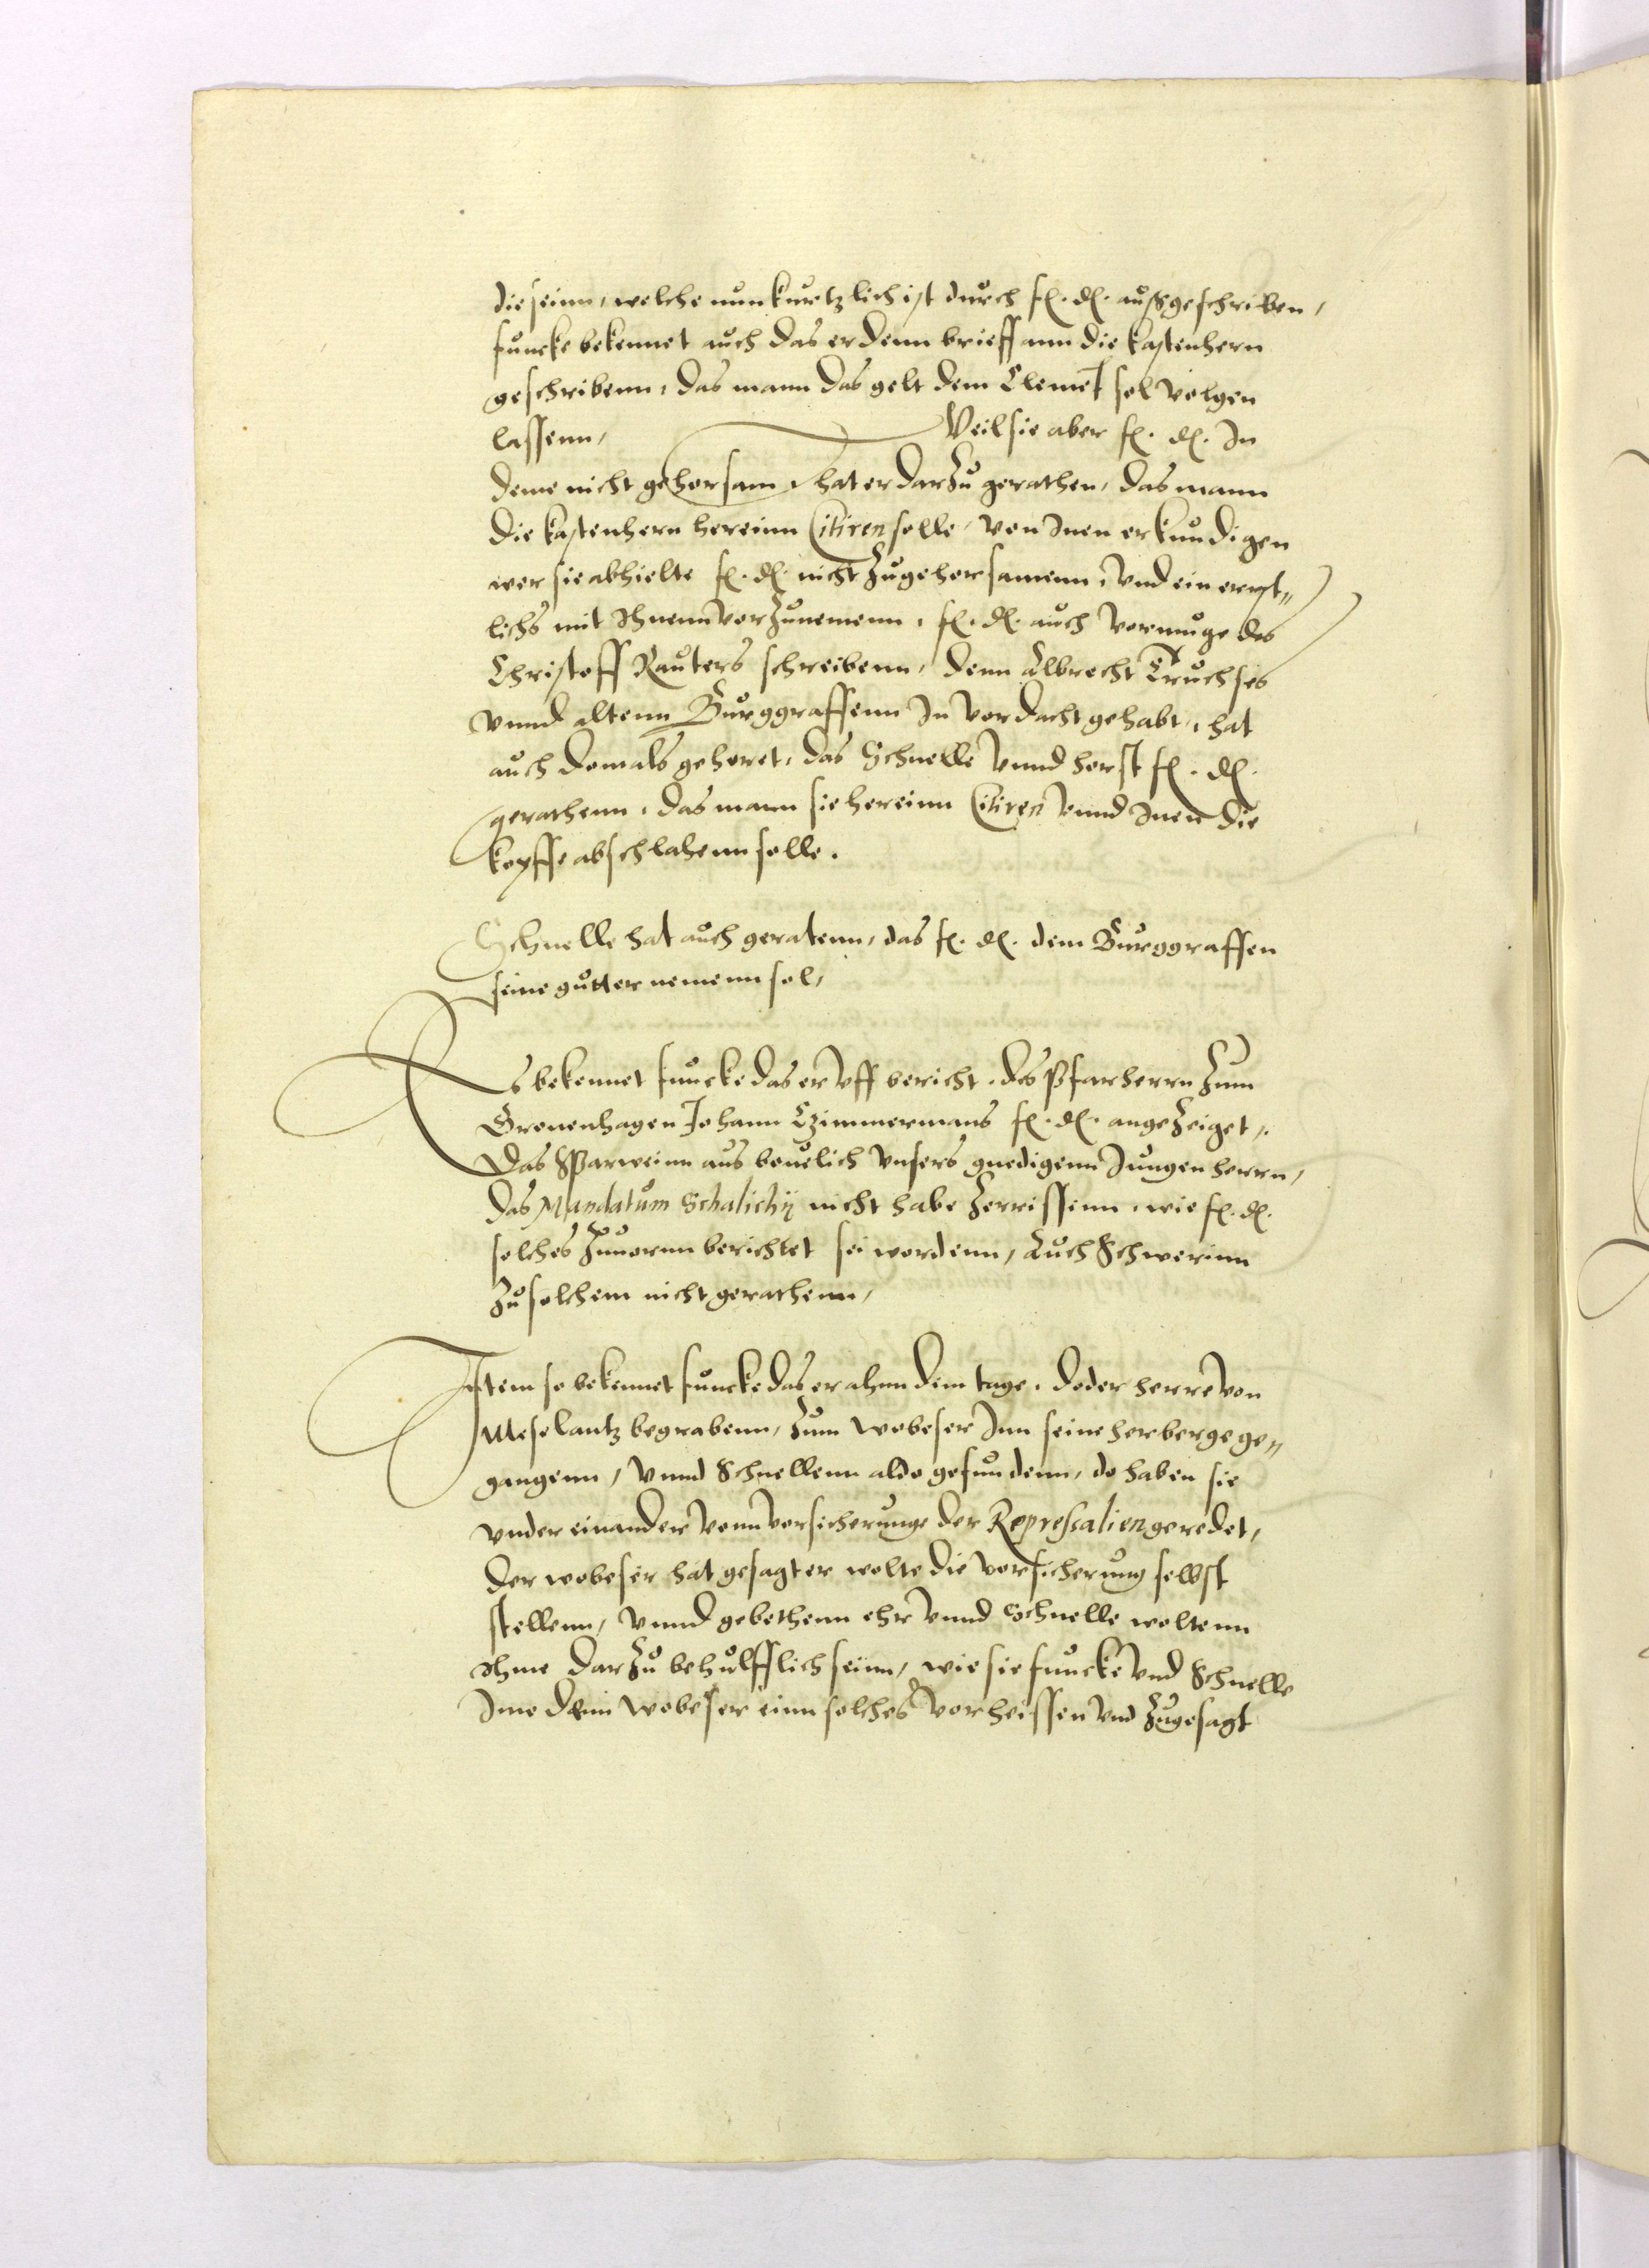 die seinn, welche nun kurtzlich ist durch f. d. außgeschriben,
funcke bekennet auch das er denn brieff ann die kastenhern
geschribenn, das mann das gelt dem Clemet sol volgen
lassenn, Weil sie aber f. d. In
deme nicht gehorsam, hat er darzu gerathen, das mann
die kastenhern hereinn Citiren solle, von Inen erkundigen
wer sie abhielte f. d. nicht zugehorsamenn, und ein ernst„
lichs mit Ihnenn vorzunemenn, f. d. auch vormuge des
Christoff Rauters schreibenn, denn Albrecht Truchses
vnnd altenn Burggraffenn In vordacht gehabt, hat
auch domals gehoret, das Schnelle vnnd horst f. d.
gerathenn, das mann sie hereinn Citiren vnnd Inen die
kopffe abschlahenn solle.
Schnelle hat auch geratenn, das f. d. dem Burggraffen
seine gutter nemenn sol,
Es bekennet funcke das er vff bericht, des pfarherrn zum
Gronenhagen Johann Czimmermans f. d. angezeiget,
Das Sparweinn aus beuelich vnsers gnedigenn Jungen herrn,
das Mandatum Schalichij nicht habe zerrissenn, wie f. d.
solches zuuornn berichtet sei wordenn, Auch Schwerinn
zu solchem nicht gerathenn,
Item so bekennet funcke das er ahnn dem tage, do der herre von
Meselantz begrabenn, zum wobeser Inn seine herberge ge„
gangenn, vnnd Schnellenn aldo gefundenn, do haben sie
vnder einander vonn vorsicherunge der Repressalien geredet,
der wobeser hat gesagt er wolte die vorsicherung selbst
stellenn, vnnd gebethenn ehr vnnd Schnelle woltenn
Ihme darzu behulfflich seinn, wie sie funcke vnd Schnelle
Ime dem wobeser einn solches vorheissen vnd zugesagt